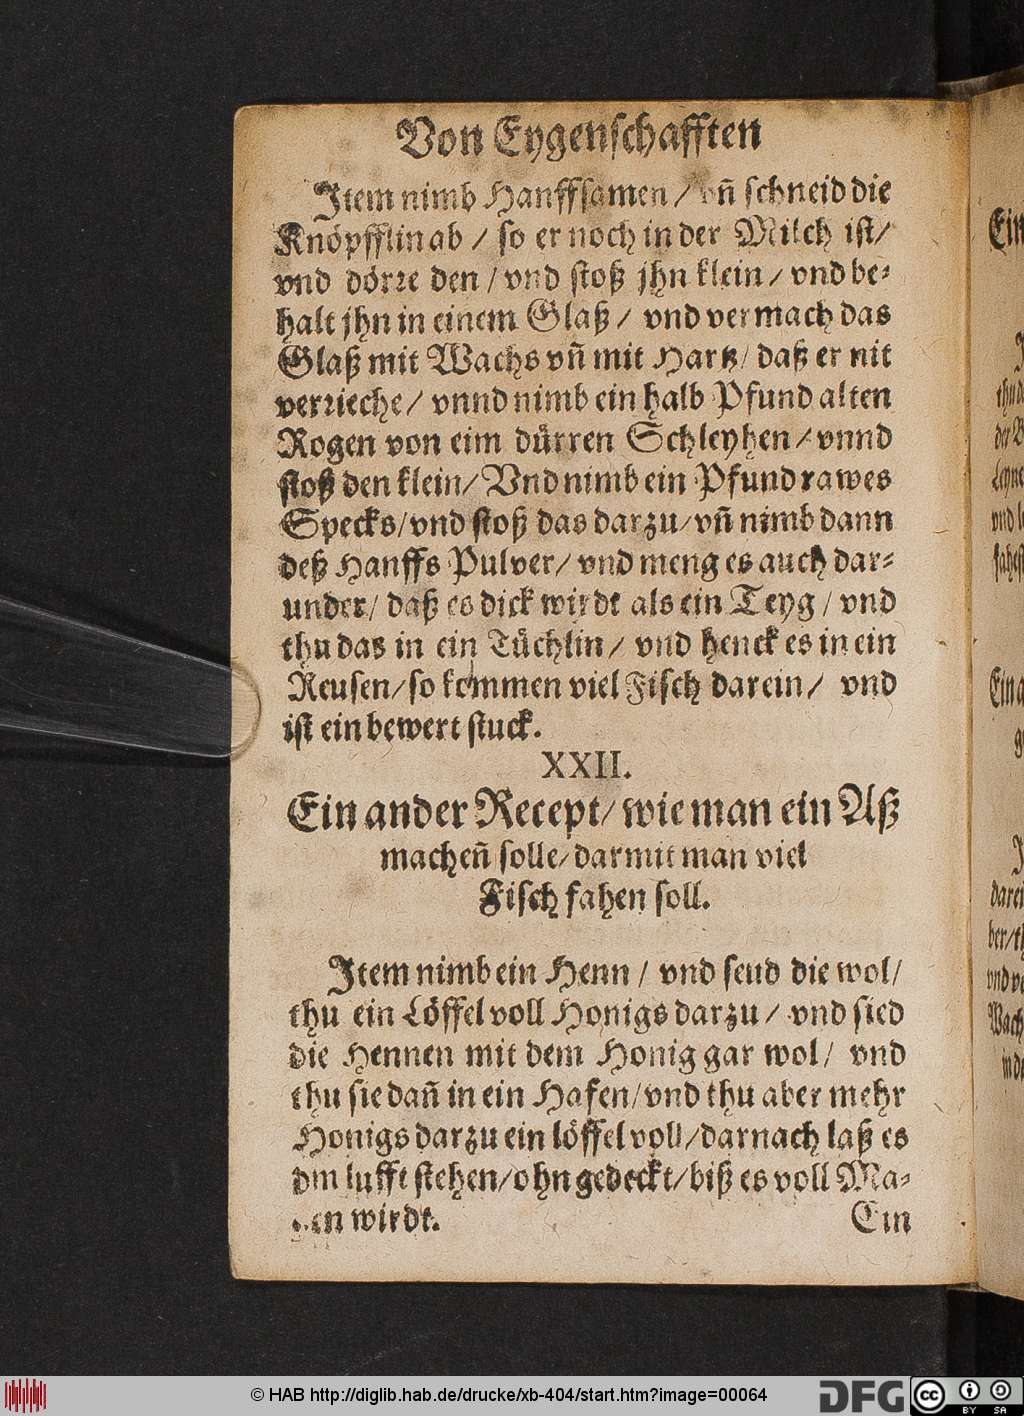 Von Eygenschafften
Item nimb Hanffsamen / vñ schneid die
Knöpfflin ab / so er noch in der Milch ist /
vnd dörre den / vnd stoß jhn klein / vnd be-
halt jhn in einem Glaß / vnd vermach das
Glaß mit Wachs vñ mit Hartz / daß er nit
verrieche / vnnd nimb ein halb Pfund alten
Rogen von eim dürren Schleyhen / vnnd
stoß den klein / Vnd nimb ein Pfund rawes
Specks / vnd stoß das darzu / vñ nimb dann
deß Hanffs Pulver / vnd meng es auch dar-
under / daß es dick wirdt als ein Teyg / vnd
thu das in ein Tüchlin / vnd henck es in ein
Reusen / so kommen viel Fisch darein / vnd
ist ein bewert stuck.
XXII.
Ein ander Recept / wie man ein Aß
macheñ solle / darmit man viel
Fisch fahen soll.
Item nimb ein Henn / vnd seud die wol /
thu ein Löffel voll Honigs darzu / vnd sied
die Hennen mit dem Honig gar wol / vnd
thu sie dañ in ein Hafen / vnd thu aber mehr
Honigs darzu ein löffel voll / darnach laß es
lufft stehen / ohn gedeckt / biß es voll Ma-
wirdt.
Ein
© HAB http://diglib.hab.de/drucke/xb-404/start.htm?image=00064
DFG
cc BY SA